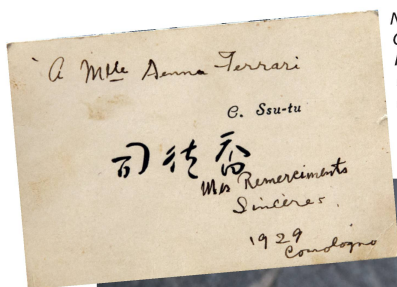 A Mlle Ferrari
C. Ssu-tu
司徒喬
Mes Remerciments
Sincères.
1929
Comologno